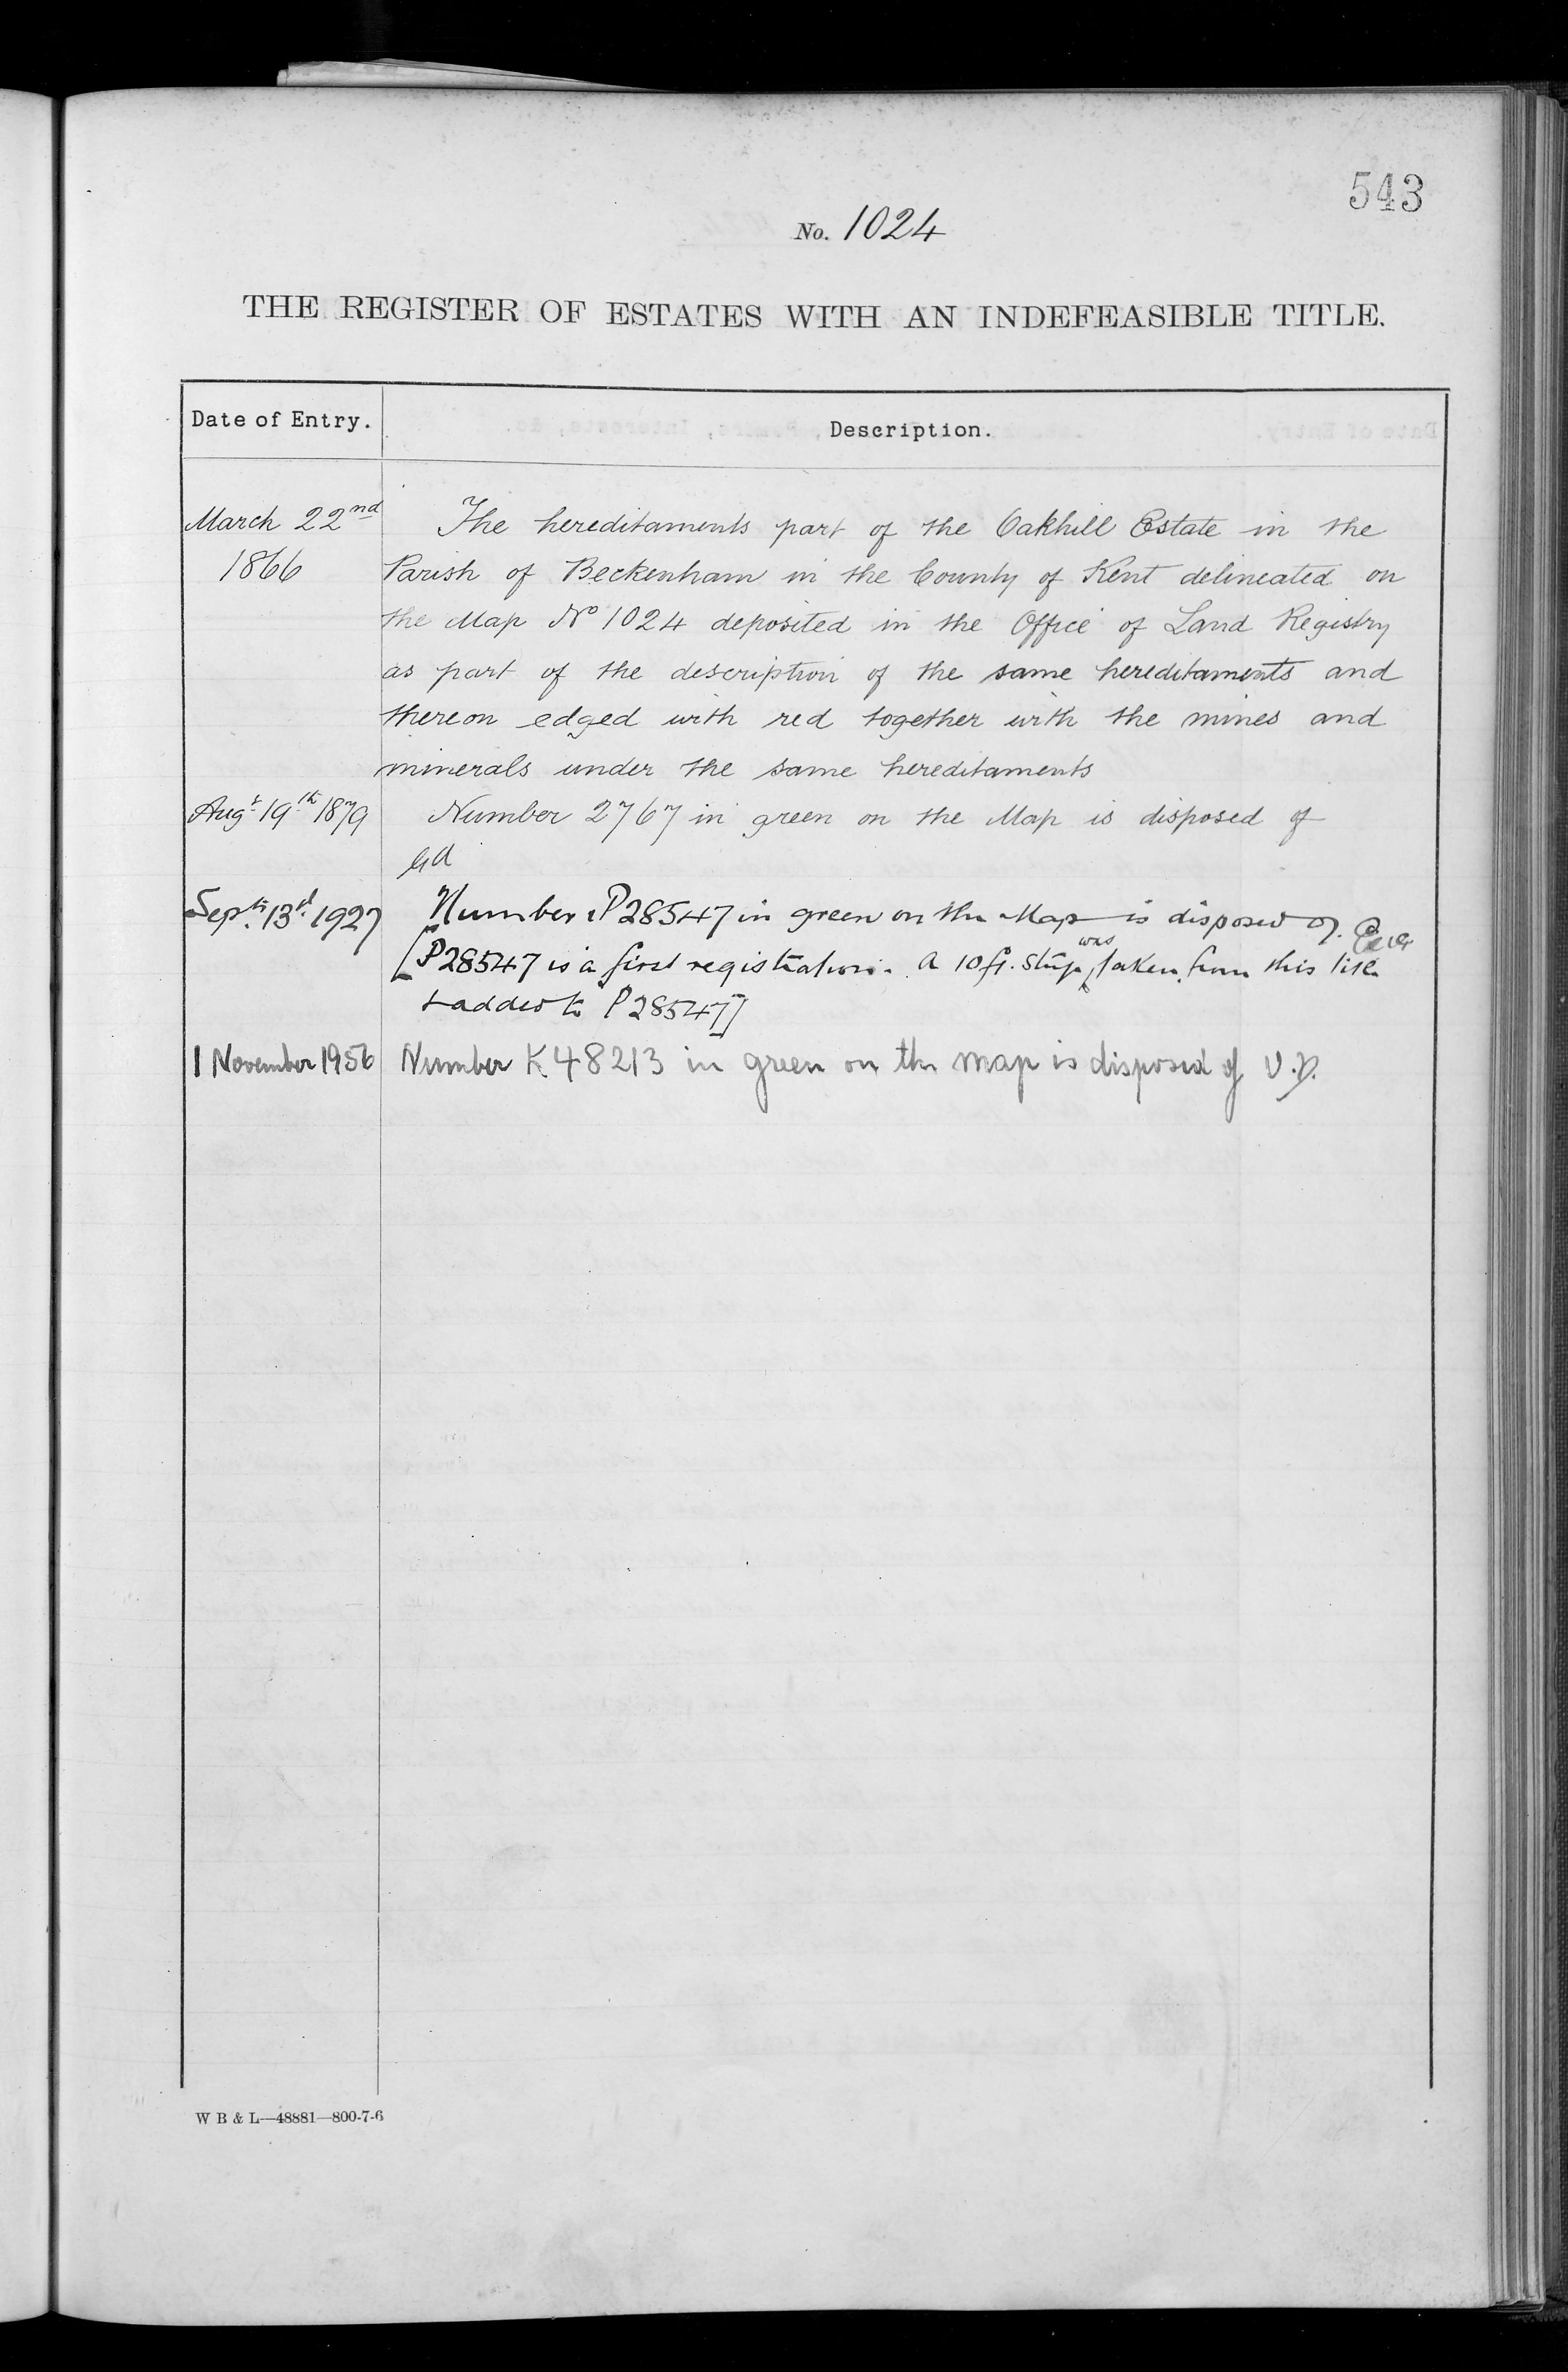 543
No. 1024
THE REGISTER OF ESTATES WITH AN INDEFEASIBLE TITLE.
Date of Entry. Description.
March 22nd The hereditaments part of the Oakhill Estate in the
1866 Parish of Beckenham in the County of Kent delineated on
the Map No 1024 deposited in the Office of Land Registry
as part of the description of the same hereditaments and
thereon edged with red together with the mines and
minerals under the same hereditaments
Augt 19th 1879 Number 2767 in green on the Map is disposed of
Sept. 13th 1927 Number P28547 in green on the Map is disposed of.
[P28547 is a first registration. A 10 ft. strip was taken from this title
& added to P28547]
1 November 1956 Number K48213 in green on the map is disposed of V.P.
W B & L—48881—800-7-6